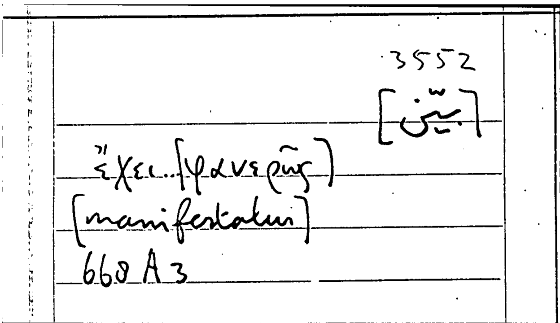 3552
[بيّن]
ἔχει..[φανερῶς]
[manifestatur]
668 A 3